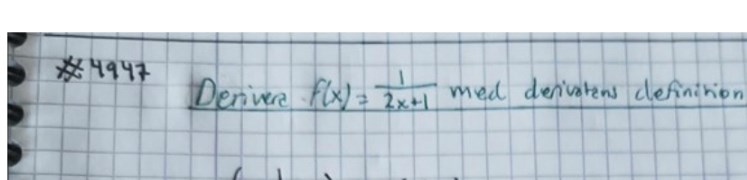 #4947
Derivera f(x) = 1/(2x+1) med derivatans definition